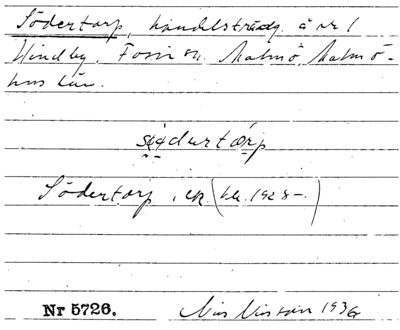 Södertorp, handelsträdg. å nr 1
Hindby, Fosie sn. Malmö, Malmö-
hus län.
södertorp, en. (bl. 1928-.)
Nr 5726. Nils Nilsson 1936